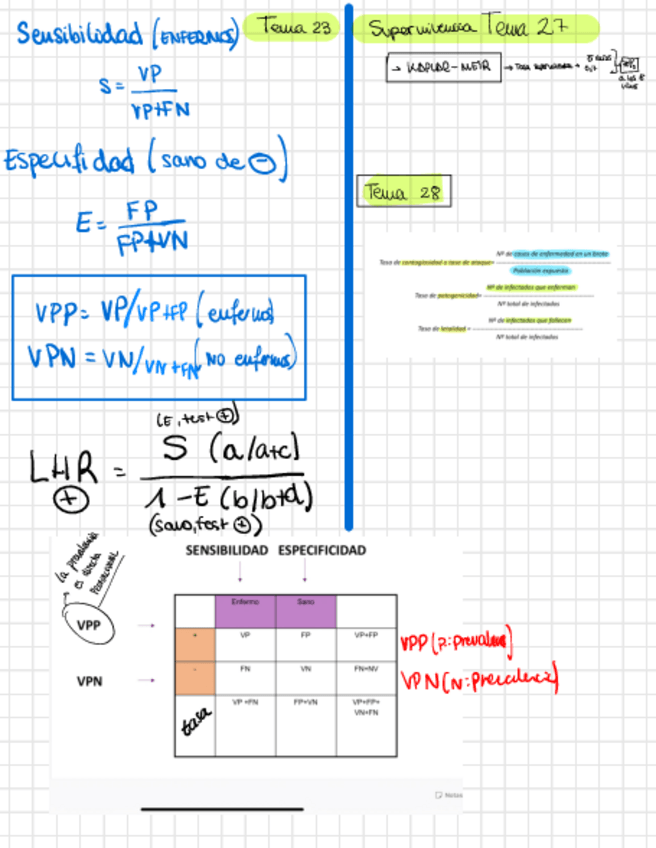 Sensibilidad (ENFERMOS) Tema 23
S = VP
VP+FN
Especifidad (sano de ⊖)
E = FP
FP+VN
VPP = VP/VP+FP (enfermos)
VPN = VN/VN+FN (NO enfermos)
(E, test ⊕)
LHR = S (a/a+c)
⊕ 1-E (b/b+d)
(sano, test ⊕)
Supervivencia Tema 27
→ KAPLAN-MEIR → Tasa
Tema 28
Nº de casos de enfermedad en un brote
Tasa de contagiosidad o tasa de ataque=
Población expuesta
Nº de infectados que enferman
Tasa de patogenicidad=
Nº total de infectados
Nº de infectados que fallecen
Tasa de letalidad =
Nº total de infectados
SENSIBILIDAD ESPECIFICIDAD
la prevalencia
es directa
PROPORCIONAL
VPP
VPN
Enfermo Sano
+ VP FP VP+FP
- FN VN FN+NV
tasa VP +FN FP+VN VP+FP+
VN+FN
VPP (P: prevalencia)
VPN (N: prevalencia)
Notes